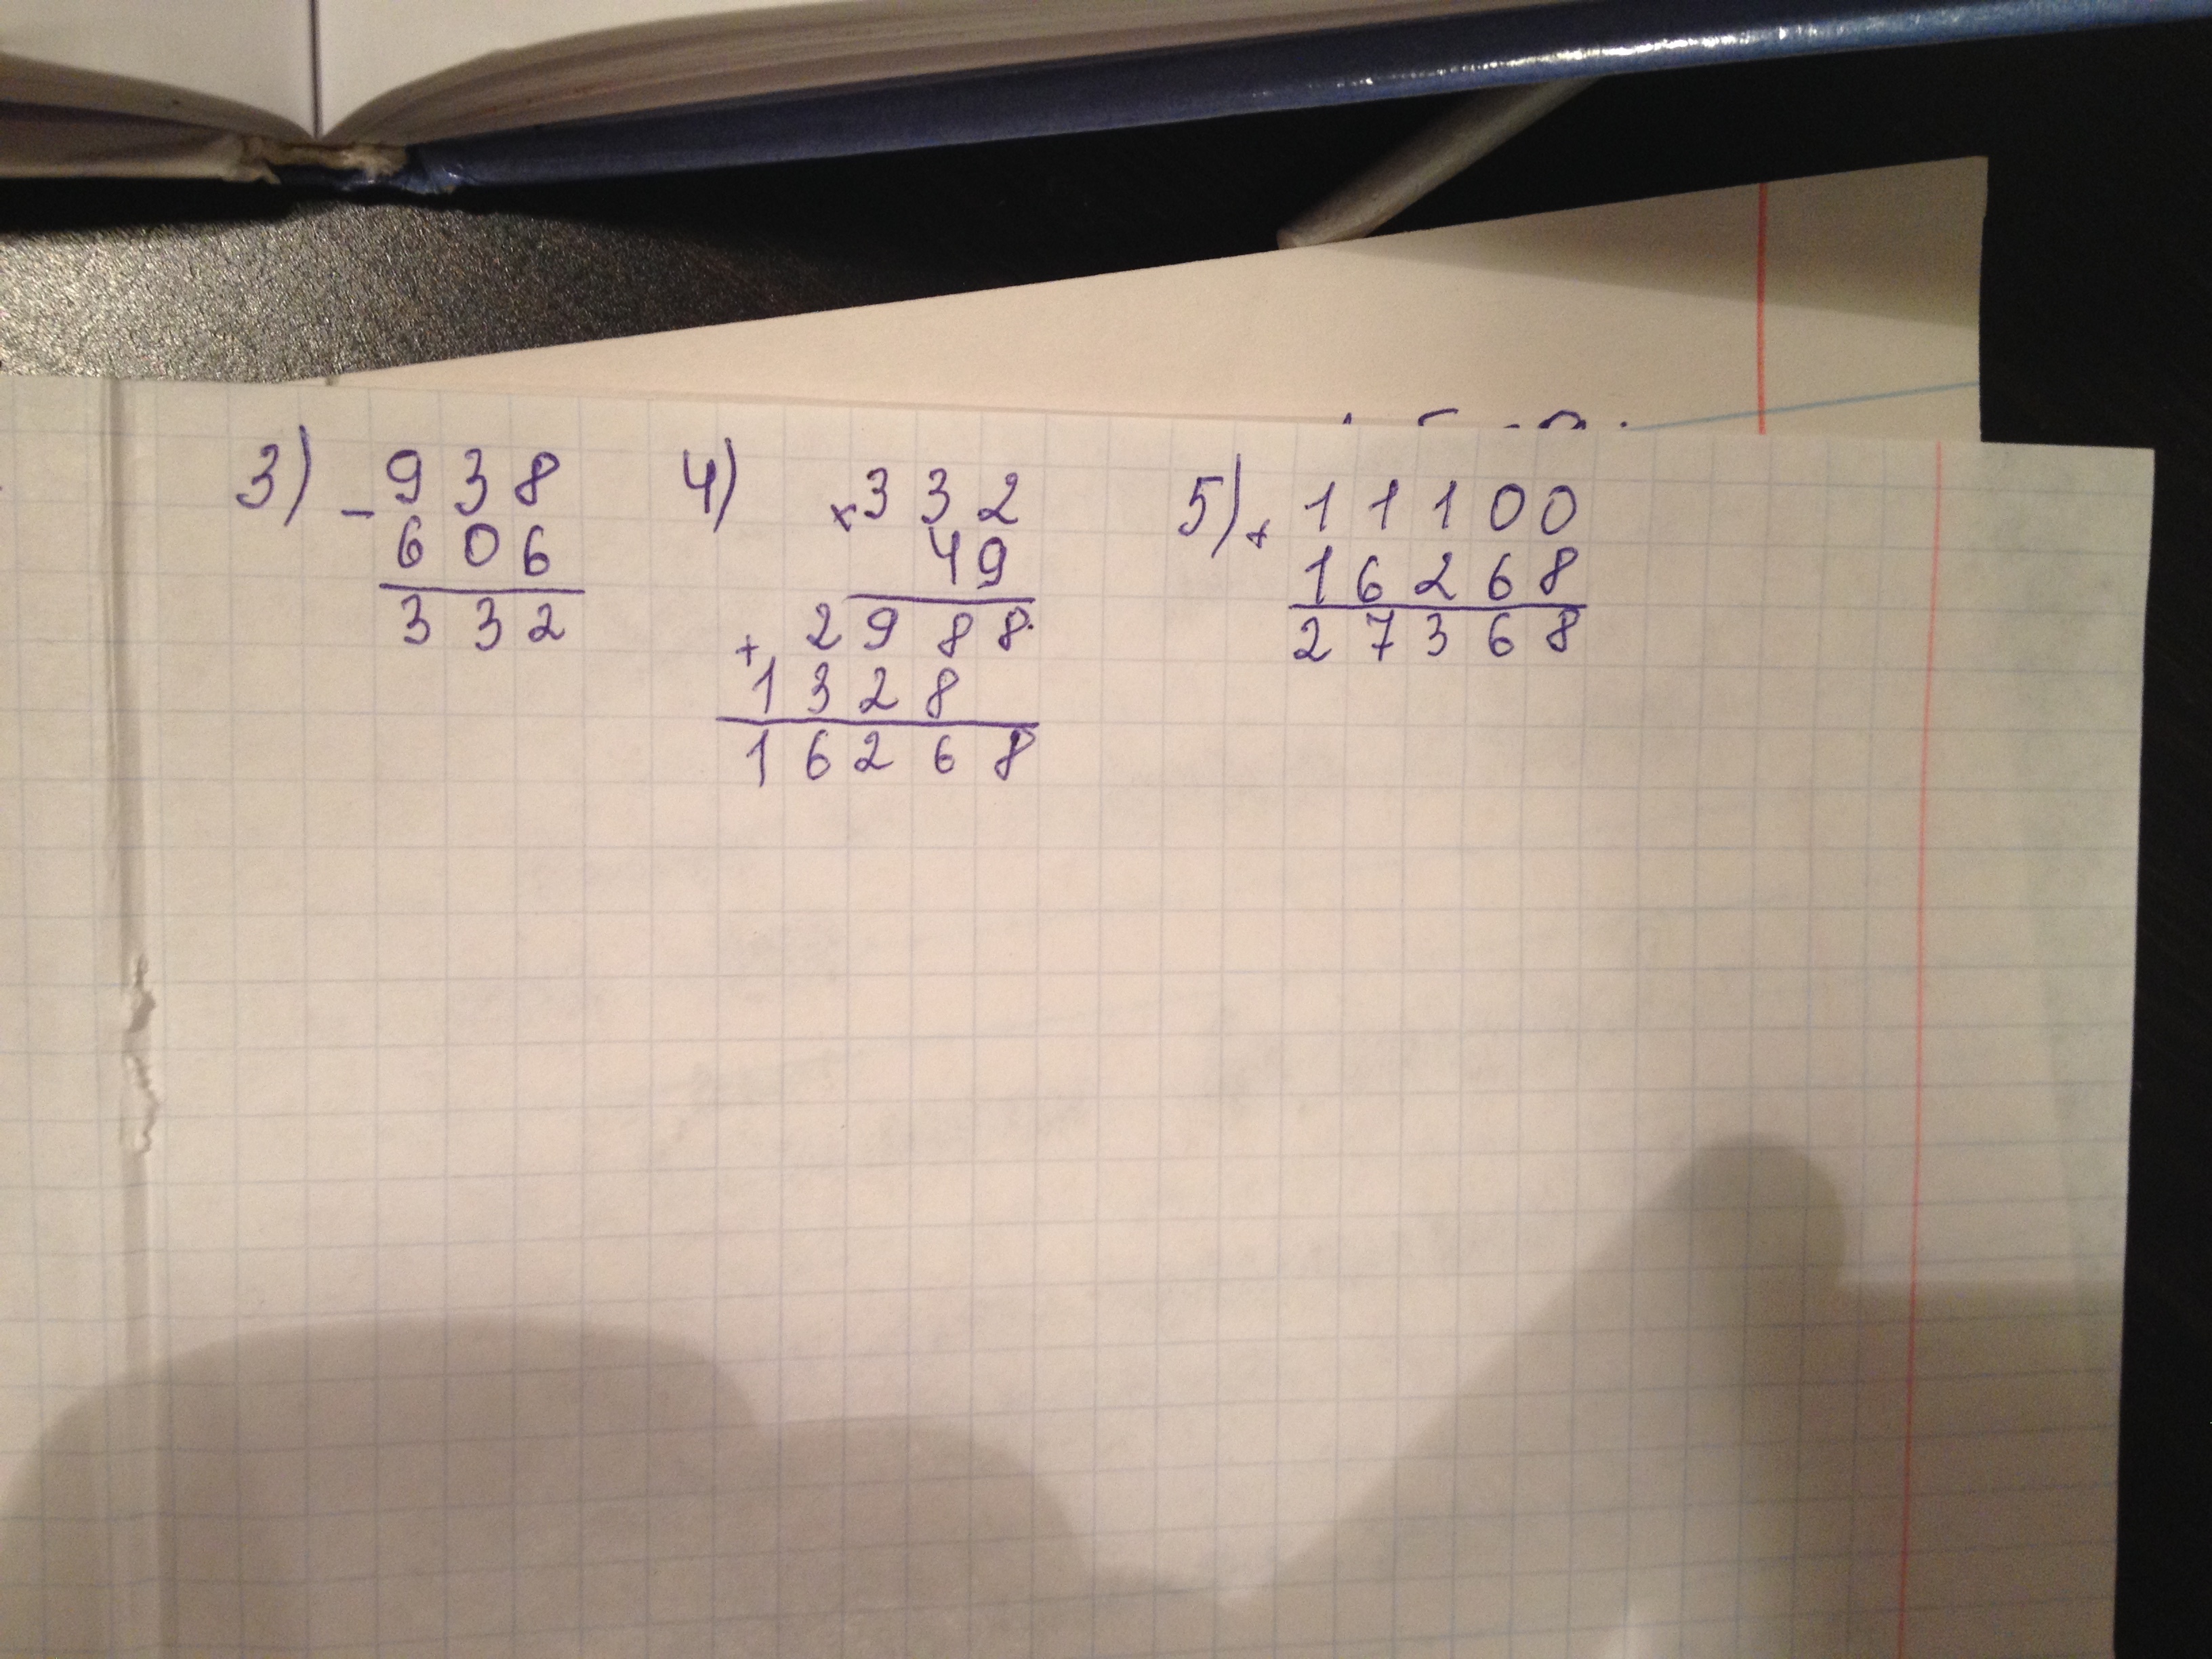 3) - 938
606
332
4) × 332
49
+ 2988
1328
16268
5) + 11100
16268
27368